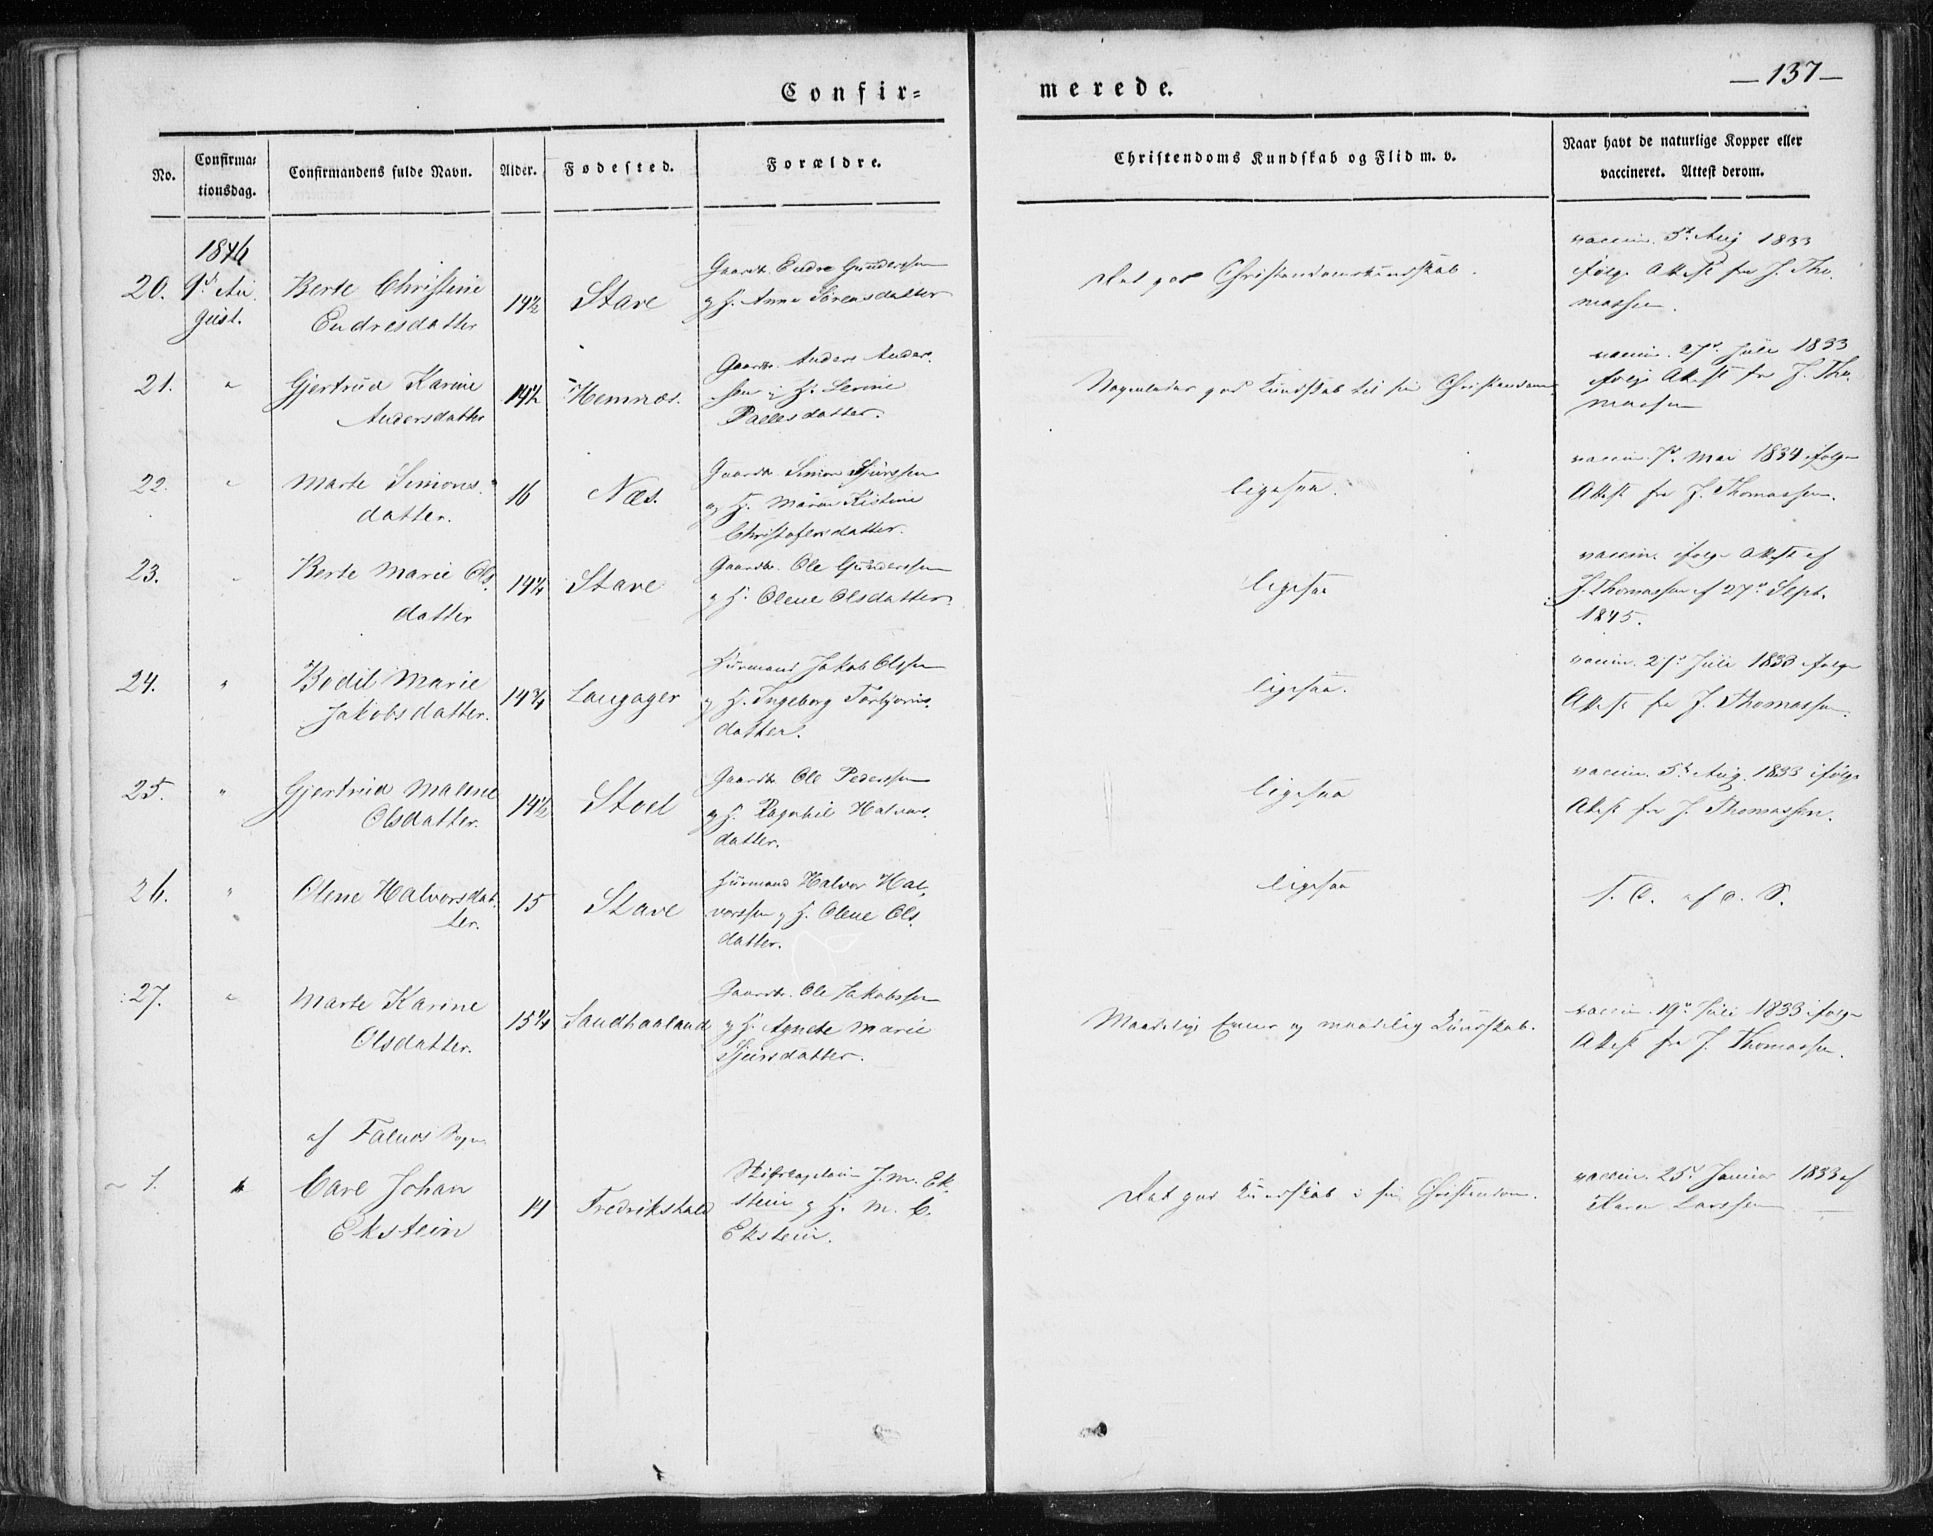 — 137 —
Confir= merede.
No.
Confirma=
tionsdag.
Confirmandens fulde Navn.
Alder.
Fødested.
Forældre.
Christendoms Kundskab og Flid m. v.
Naar havt de naturlige Kopper eller
vaccineret. Attest derom.
1846
20. 9d Au
gust.
Berte Christine
Endresdatter
14½
Stave
Gaardb. Endre Gundersen
og H. Anne Sørensdatter
Ret god Christendomskundskab.
vaccin. 5t Aug 1833
ifølge Attest fra J. Tho
massen.
21. "
Gjertrud Karine
Andersdatter
14½
Hemnæs.
Gaardb. Anders Ander,
sen og H. Serine
Pallesdatter.
Nogenlunde god Kundskab til sin Christendom
vaccin. 27d Juli 1833
ifølge Attest fra J. Tho,
massen
22. "
Marte Simons,
datter.
16
Næs.
Gaardb. Simon Sjurssen
og H. Maren Kistine
Christofersdatter.
ligesaa.
vaccin. 7d Mai 1834 ifølge
Attest fra J. Thomassen.
23. "
Berte Marie Ols,
datter
14¼
Stave
Gaardb. Ole Gundersen
og H. Olene Olsdatter.
ligesaa
vaccin. ifølge Attest af
J. Thomassen af 27d Sept.
1845.
24. "
Bodil Marie
Jakobsdatter.
14¾
Laugager
Huusmand Jakob Olsen
og H. Ingeborg Torbjørns,
datter.
ligesaa.
vaccin. 27d Juli 1833 ifølge
Attest fra J. Thomassen.
25. "
Gjertrud Malene
Olsdatter.
14½
Stoel
Gaardb. Ole Pederssen
og H. Ragnhil Halvors,
datter.
ligesaa
vaccin. 5t Aug. 1833 ifølge
Attest fra J. Thomassen.
26. "
Olene Halvorsdat,
ter.
15
Stave
Huusmand Halvor Hal,
vorssen og H. Olene Ols,
datter.
ligesaa
27. "
Marte Karine
Olsdatter.
15¼
Sandhaaland
Gaardb. Ole Jakobssen
og H. Agnete Marie
Sjursdatter.
Maadelige Evner og maadelig Kundskab.
vaccin. 19d Juli 1833 ifølge
Attest fra J. Thomassen.
af Falnæs Sogn
1.
Carl Johan
Ekstein
14
Fredrikshald
J. M. Ek,
stein og H. M. C.
Ekstein.
Ret god Kundskab i sin Christendom.
vaccin. 25d Januar 1833 af
Larssen